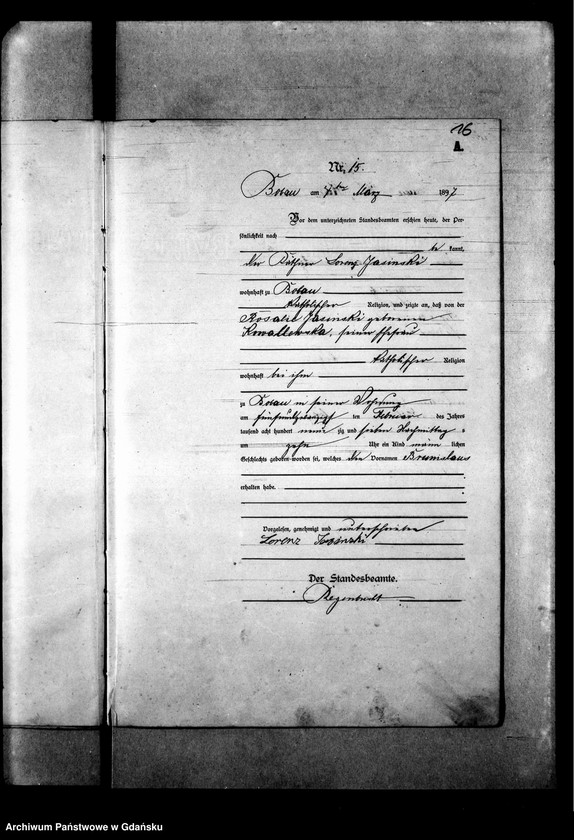 16
A.
Nr. 15.
Bobau am März 1897
Vor dem unterzeichneten Standesbeamten erschien heute, der Per-
sönlichkeit nach
be kannt,
der Käthner Lorenz Jasinski
wohnhaft zu Bobau
katholischer Religion, und zeigte an, daß von der
Rosalie Jasinski geborenen
Kowallewska, seiner Ehefrau
katholischer Religion
wohnhaft bei ihm
zu Bobau in seiner Wohnung
am fünfundzwanzigsten Februar des Jahres
tausend acht hundert neun zig und sieben Nachmittag s
um zehn Uhr ein Kind männ lichen
Geschlechts geboren worden sei, welches den Vornamen Bronislaus
erhalten habe.
Vorgelesen, genehmigt und unterschrieben
Lorenz Jasinski
Der Standesbeamte.
Archiwum Państwowe w Gdańsku